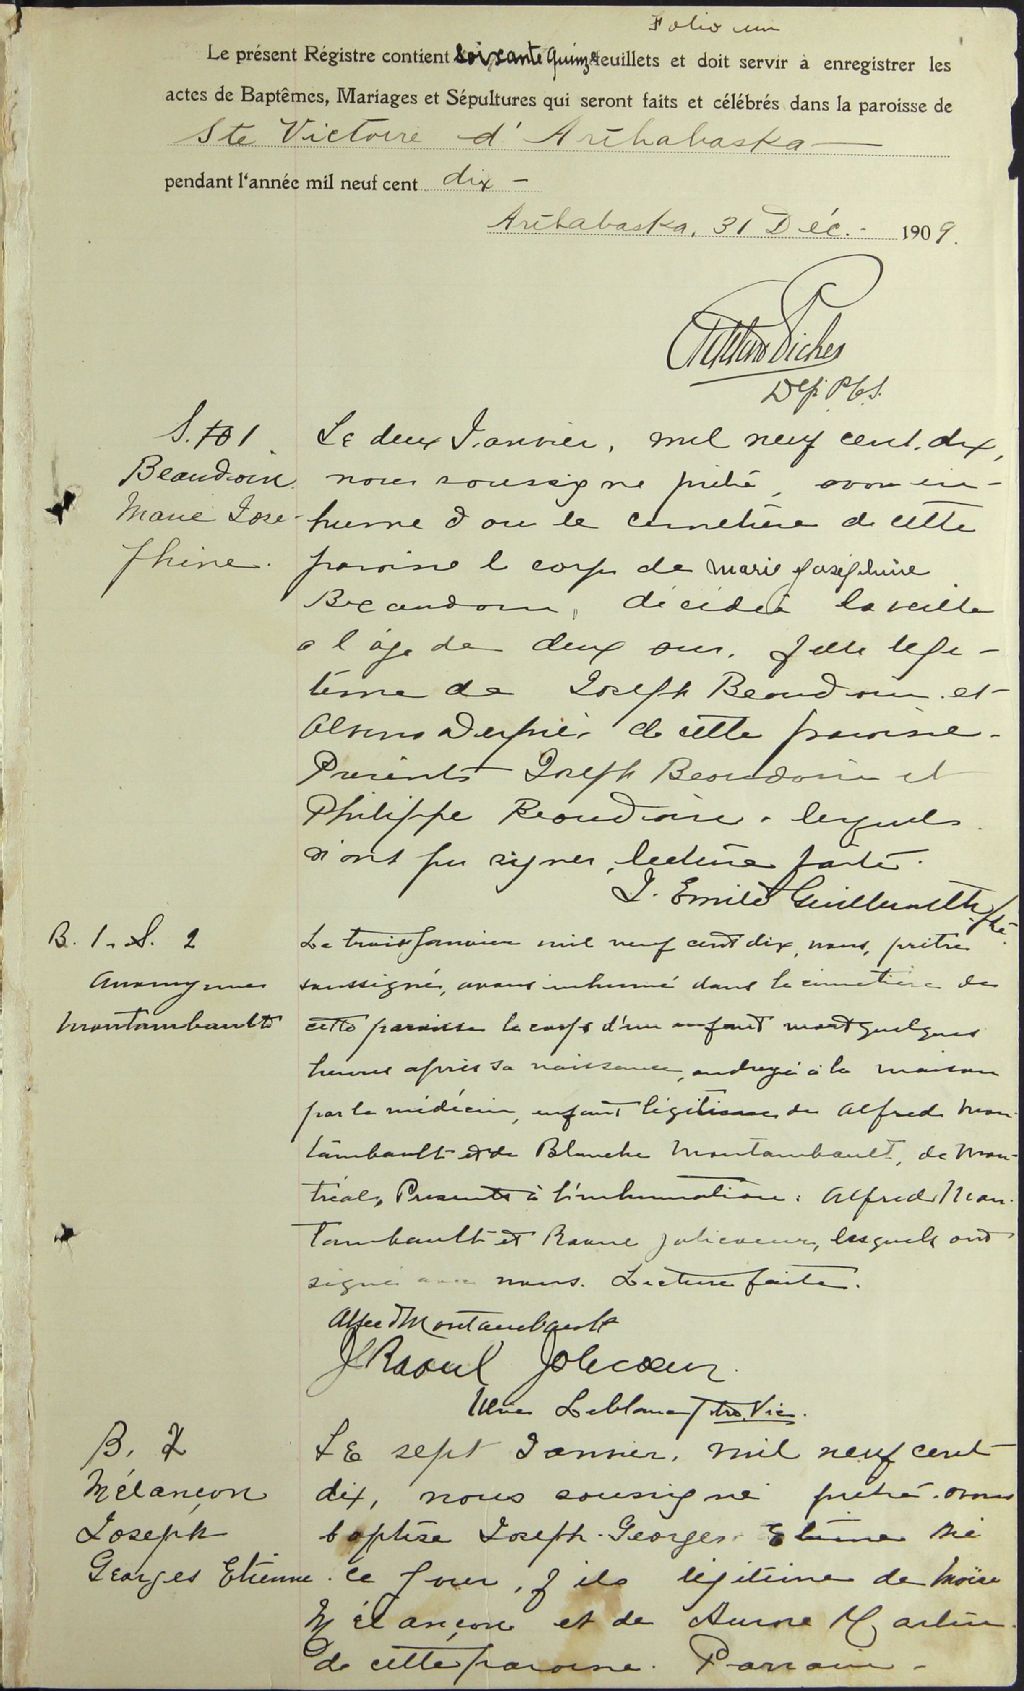 Folio un
Le présent Régistre contient soixante quinze feuillets et doit servir à enregistrer les
actes de Baptêmes, Mariages et Sépultures qui seront faits et célébrés dans la paroisse de
Ste Victoire d'Arthabaska
pendant l'année mil neuf cent dix -
Arthabaska, 31 Déc. - 1909.
Piches
Dep. P.C.S.
S. 1
Beaudoin
Marie Jose-
phine.
Le deux Janvier, mil neuf cent dix,
nous soussigné prêtre, avons in-
humé dans le cimetière de cette
paroisse le corps de marie joséphine
Beaudoin, décédée la veille
a l'âge de deux ans, fille légi-
time de Joseph Beaudoin et
de cette paroisse.
Présents Joseph Beaudoin et
Philippe Beaudoin, lesquels
n'ont pu signer, lecture faite.
J. Emile Guillemette, ptre.
B. 1. S. 2
Anonyme
Montambault
Le trois Janvier mil neuf cent dix, nous, prêtre
soussigné, avons inhumé dans le cimetière de
cette paroisse le corps d'un enfant mort quelques
heures après sa naissance, ondoyé à la maison
par le médecin, enfant légitime de Alfred Mon-
tambault et de Blanche Montambault, de Mon-
tréal, Présents à l'inhumation: Alfred Mon-
tambault et Raoul Jolicoeur, lesquels ont
signé avec nous. Lecture faite.
Alfred Montambault
J Raoul Jolicoeur.
Leblanc Ptre. Vic.
B. 2
Mélançon
Joseph
Georges Etienne
Le sept Janvier, mil neuf cent
dix, nous soussigné prêtre avons
baptisé Joseph-Georges Etienne né
ce jour, fils légitime de Moïse
Mélançon et de Aurore Martin
de cette paroisse. Parrain -